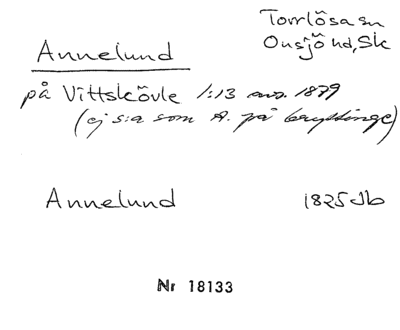 Torrlösa sn
Onsjö hd, Sk
Annelund
på Vittskövle 1:13 avs. 1879
(ej s:a som A. på
Annelund 1825 Jb
Nr 18133